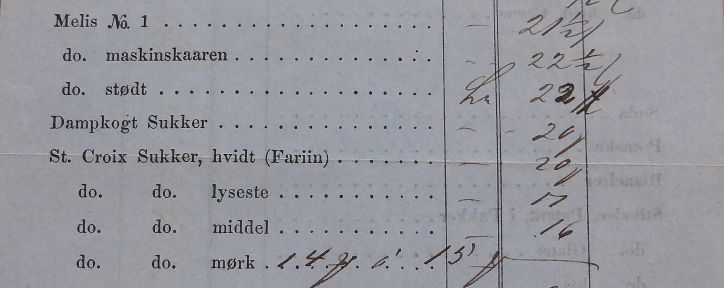 Melis No. 1 . . . . . . . . . . . . . . . . — 21½
do. maskinskaaren . . . . . . . . . . . — 22½
do. stødt . . . . . . . . . . . . . . . . 22
Dampkogt Sukker . . . . . . . . . . . . — 20
St. Croix Sukker, hvidt (Fariin) . . . . . . — 20
do. do. lyseste . . . . . . . . . — 17
do. do. middel . . . . . . . . . — 16
do. do. mørk . 14 à 15